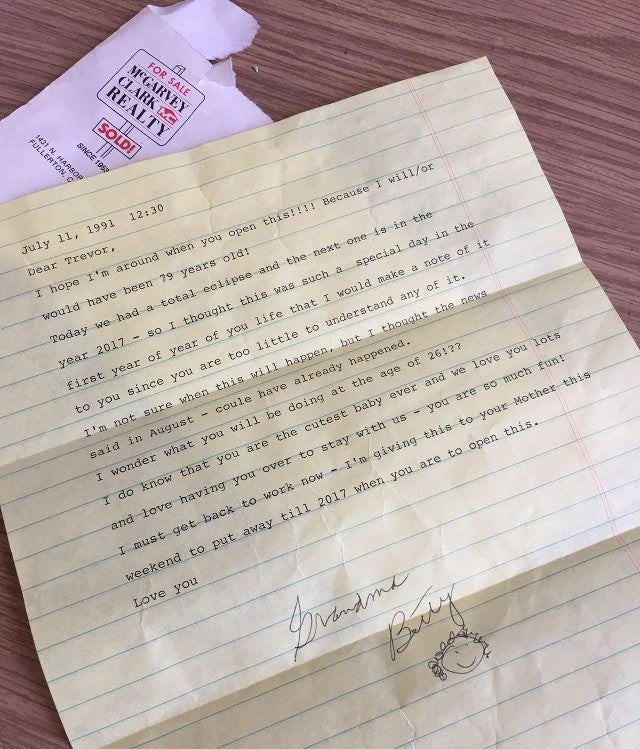 FOR SALE
McGARVEY
CLARK MC
REALTY
SOLD!
SINCE 1959
1431 N. HARBOR
FULLERTON, C
July 11, 1991 12:30
Dear Trevor,
I hope I'm around when you open this!!!! Because I will/or
would have been 79 years old!
Today we had a total eclipse and the next one is in the
year 2017 - so I thought this was such a special day in the
first year of year of you life that I would make a note of it
to you since you are too little to understand any of it.
I'm not sure when this will happen, but I thought the news
said in August - coule have already happened.
I wonder what you will be doing at the age of 26!??
I do know that you are the cutest baby ever and we love you lots
and love having you over to stay with us - you are so much fun!
I must get back to work now - I'm giving this to your Mother this
weekend to put away till 2017 when you are to open this.
Love you
Grandma Betty